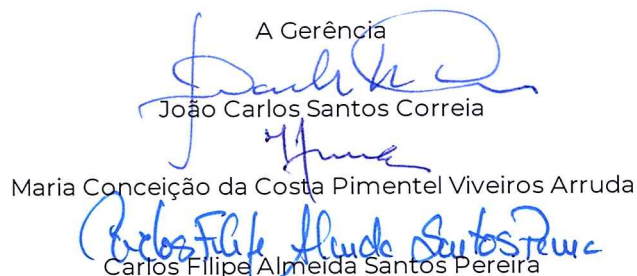 A Gerência
João Carlos Santos Correia
Maria Conceição da Costa Pimentel Viveiros Arruda
Carlos Filipe Almeida Santos Pereira
Carlos Filipe Almeida Santos Pereira